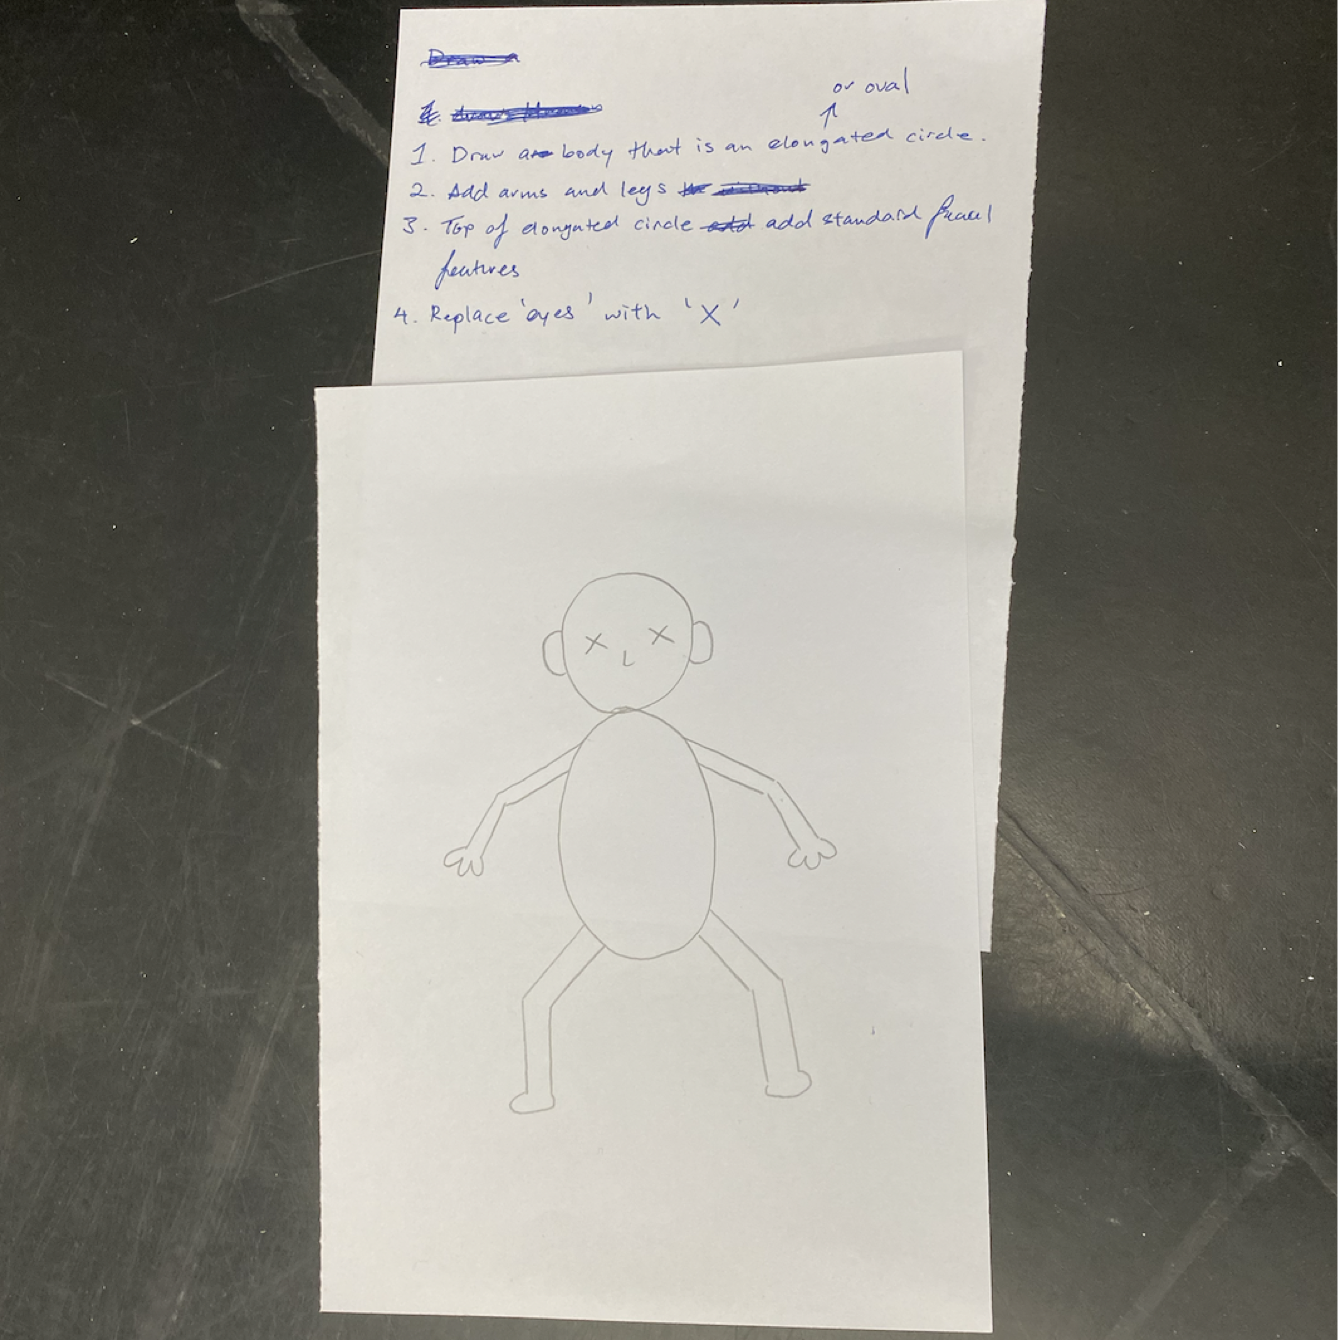 or oval
1. Draw a body that is an elongated circle.
2. Add arms and legs
3. Top of elongated circle add standard facial
features
4. Replace 'eyes' with 'X'